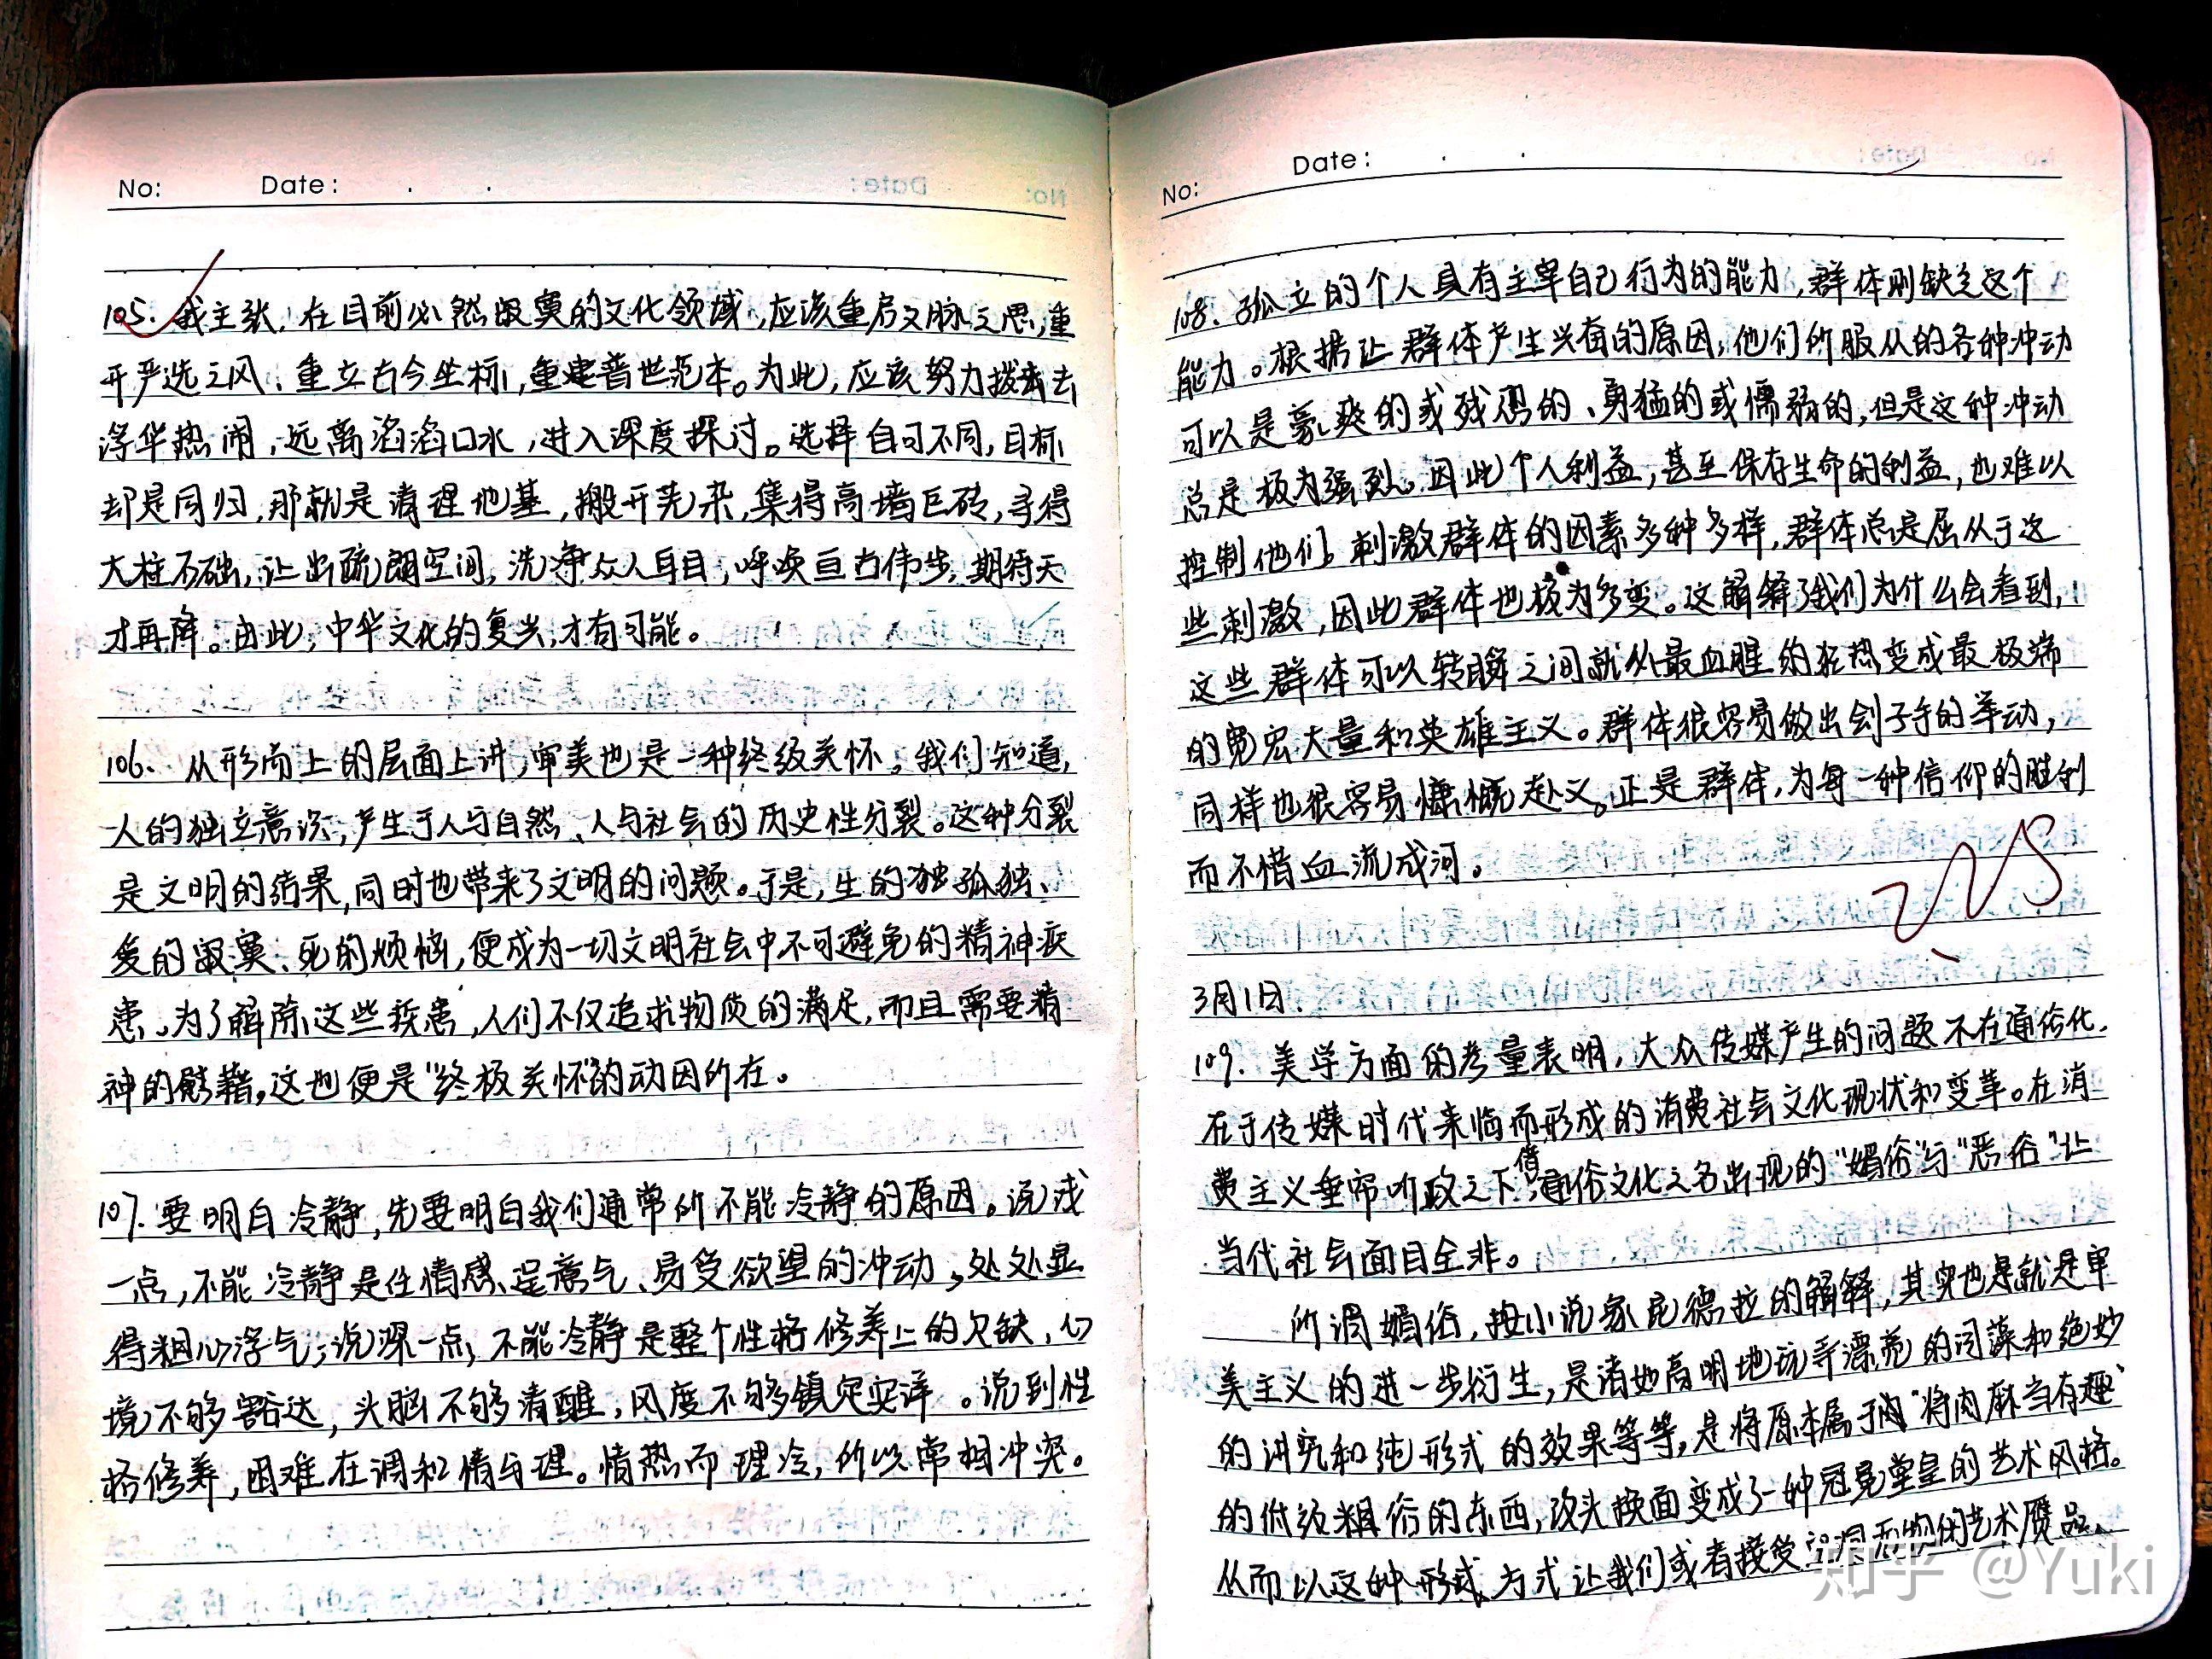 No: Date: . .
105. 我主张,在目前必然寂寞的文化领域,应该重启文脉之思,重
开严选之风、重立古今坐标,重建普世范本。为此,应该努力拨去
浮华热闹,远离滔滔口水,进入深度探讨。选择自可不同,目标
却是同归,那就是清理地基,搬开芜杂,集得高墙巨砖,寻得
大柱石础,让出疏朗空间,洗净众人耳目,呼唤亘古伟步,期待天
才再降。由此,中华文化的复兴,才有可能。
106、从形而上的层面上讲,审美也是一种终级关怀。我们知道,
人的独立意识,产生于人与自然、人与社会的历史性分裂。这种分裂
是文明的结果,同时也带来了文明的问题。于是,生的独孤独、
爱的寂寞、死的烦恼,便成为一切文明社会中不可避免的精神疾
患。为了解除这些疾患,人们不仅追求物质的满足,而且需要精
神的慰藉。这也便是"终极关怀"的动因所在。
107. 要明白冷静,先要明白我们通常所不能冷静的原因。说浅
一点,不能冷静是任情感、逞意气、易受欲望的冲动,处处显
得粗心浮气;说深一点,不能冷静是整个性格修养上的欠缺,心
境不够豁达,头脑不够清醒,风度不够镇定安详。说到性
格修养,困难在调和情与理。情热而理冷,所以常相冲突。
No: Date: . .
108、孤立的个人具有主宰自己行为的能力,群体则缺乏这个
能力。根据让群体产生兴奋的原因,他们所服从的各种冲动
可以是豪爽的或残忍的、勇猛的或懦弱的,但是这种冲动
总是极为强烈。因此个人利益,甚至保存生命的利益,也难以
控制他们。刺激群体的因素多种多样,群体总是屈从于这
些刺激,因此群体也极为多变。这解释了我们为什么会看到,
这些群体可以转瞬之间就从最血腥的狂热变成最极端
的宽宏大量和英雄主义。群体很容易做出刽子手的举动,
同样也很容易慷慨赴义。正是群体,为每一种信仰的胜利
而不惜血流成河。
3月1日.
109. 美学方面的考量表明,大众传媒产生的问题不在通俗化,
在于传媒时代来临而形成的消费社会文化现状和变革。在消
费主义垂帘听政之下,借通俗文化之名出现的"媚俗"与"恶俗"让
当代社会面目全非。
所谓媚俗,按小说家昆德拉的解释,其实也是就是审
美主义的进一步衍生,是诸如高明地玩弄漂亮的词藻和绝妙
的讲究和纯形式的效果等等,是将原本属于肉"将肉麻当有趣"
的低级粗俗的东西,改头换面变成了一种冠冕堂皇的艺术风格。
从而以这种形式、方式让我们或者接受空洞无物的艺术赝品、
知乎 @Yuki